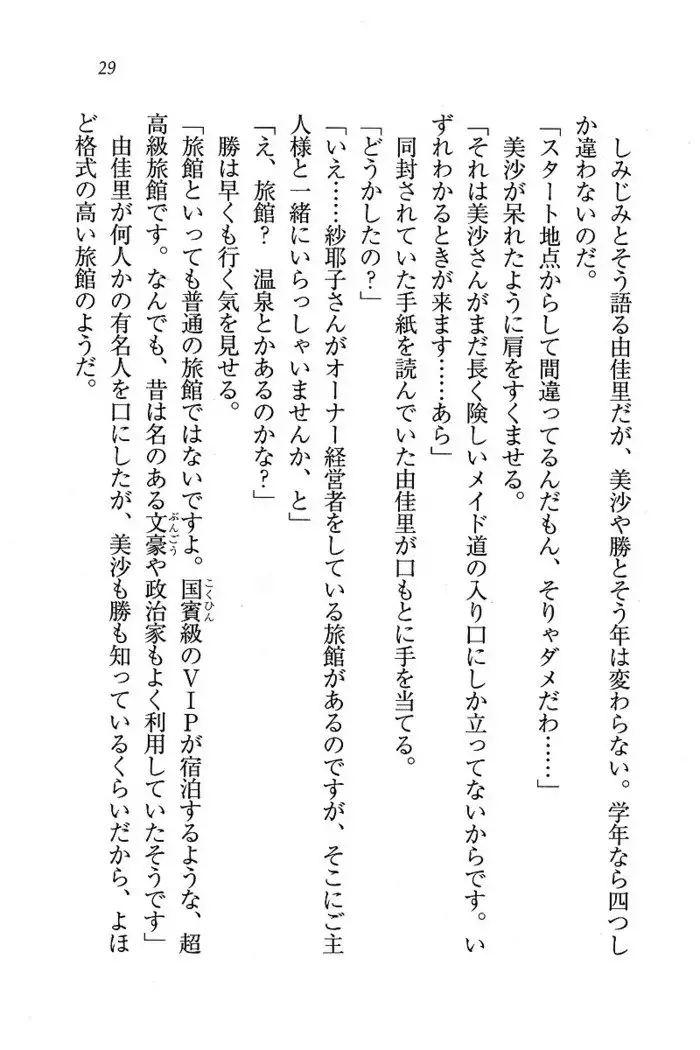 29
しみじみとそう語る由佳里だが、美沙や勝とそう年は変わらない。学年なら四つし
か違わないのだ。
「スタート地点からして間違ってるんだもん、そりゃダメだわ……」
美沙が呆れたように肩をすくませる。
「それは美沙さんがまだ長く険しいメイド道の入り口にしか立ってないからです。い
ずれわかるときが来ます……あら」
同封されていた手紙を読んでいた由佳里が口もとに手を当てる。
「どうかしたの？」
「いえ……紗耶子さんがオーナー経営者をしている旅館があるのですが、そこにご主
人様と一緒にいらっしゃいませんか、と」
「え、旅館？　温泉とかあるのかな？」
勝は早くも行く気を見せる。
「旅館といっても普通の旅館ではないですよ。国賓級のＶＩＰが宿泊するような、超
こくひん
高級旅館です。なんでも、昔は名のある文豪や政治家もよく利用していたそうです」
ぶんごう
由佳里が何人かの有名人を口にしたが、美沙も勝も知っているくらいだから、よほ
ど格式の高い旅館のようだ。